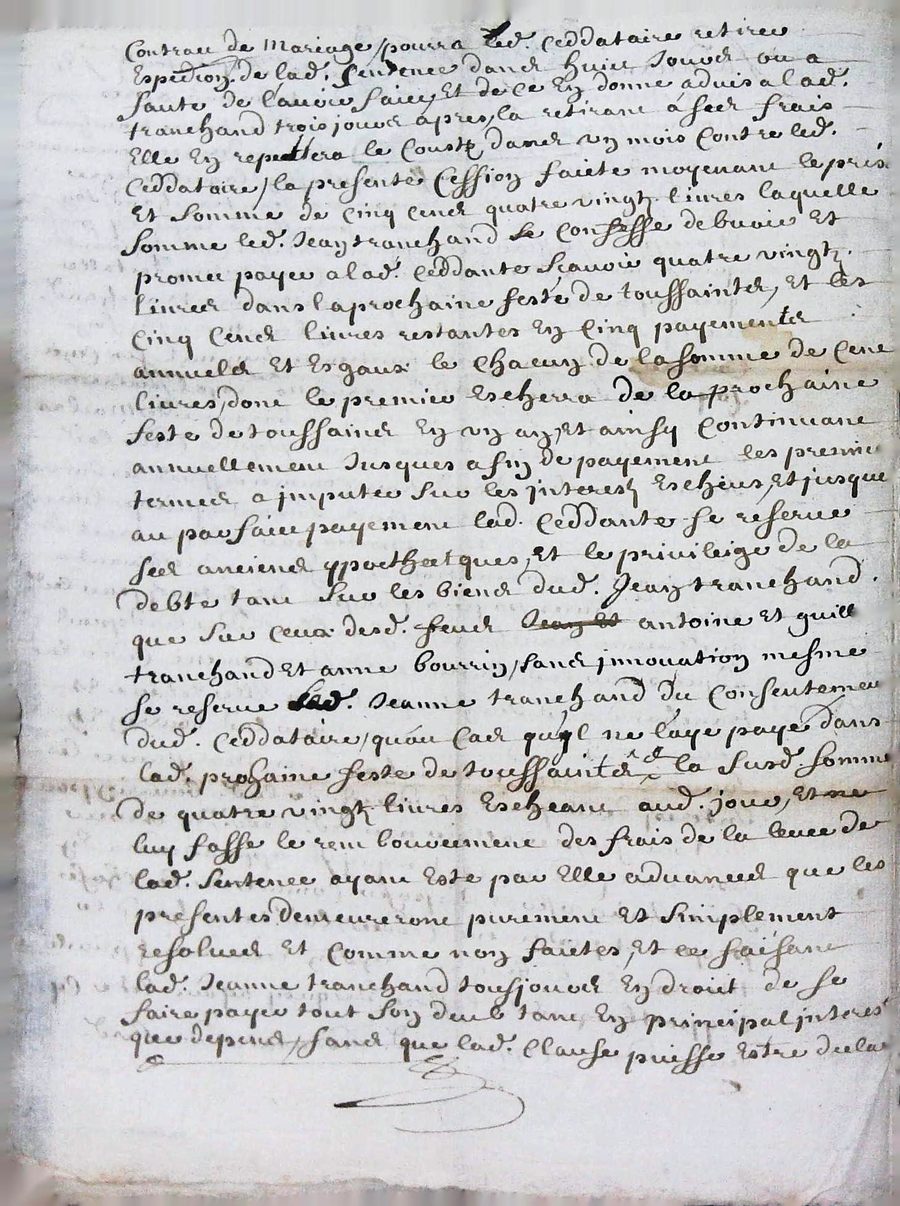 Contract de Mariage / pourra led. Ceddataire retirer
Expedition de lad. Sentence dans huict jours ou a
faute de l'avoir faict, Et de ce En donne advis a lad.
tranchand trois jours apres, la retirant a ses frais
Elle En repettera le Coust dans un mois Contre led.
Ceddataire / la presente Cession faicte moyenant le pris
Et somme de Cinq Cens quatre vingtz livres laquelle
somme led. Jean tranchand Confesse debvoir Et
promet payer a lad. Ceddante scavoir quatre vingtz
livres dans la prochaine feste de toussaintes, Et les
Cinq Cens livres restantes En Cinq payements
annuels Et Esgaux le Chacun de la somme de Cent
livres, dont le premier Escherra de la prochaine
feste de toussaines En un an, Et ainsy Continuant
annuellement Jusques a fin de payement les premiers
termes a imputer sur les interestz Escheus, Et jusque
au parfaict payement lad. Ceddante se reserve
ses anciens ypotheques, Et le privileige de la
debte tant sur les biens dud. Jean tranchand
que sur Ceux desd. feus Jean Et antoine Et guill
tranchand Et anne bourrin, sans innovation mesme
se reserve lad. Jeanne tranchand du Consentement
dud. Ceddataire, qu'au Cas qu'il ne l'aye paye dans
lad. prochaine feste de toussaintes la susd. somme
de quatre vingtz livres Escheant aud. jour, Et ne
luy fasse le rembourcement des frais de la levee de
lad. Sentence ayant Este par Elle advances que les
presentes demeureront purement Et simplement
resolues Et Comme non faictes, Et ce faisant
lad. Jeanne tranchand tousjours En droit de se
faire payer tout son deub tant En principal interes
que depens, sans que lad. Clause puisse Estre